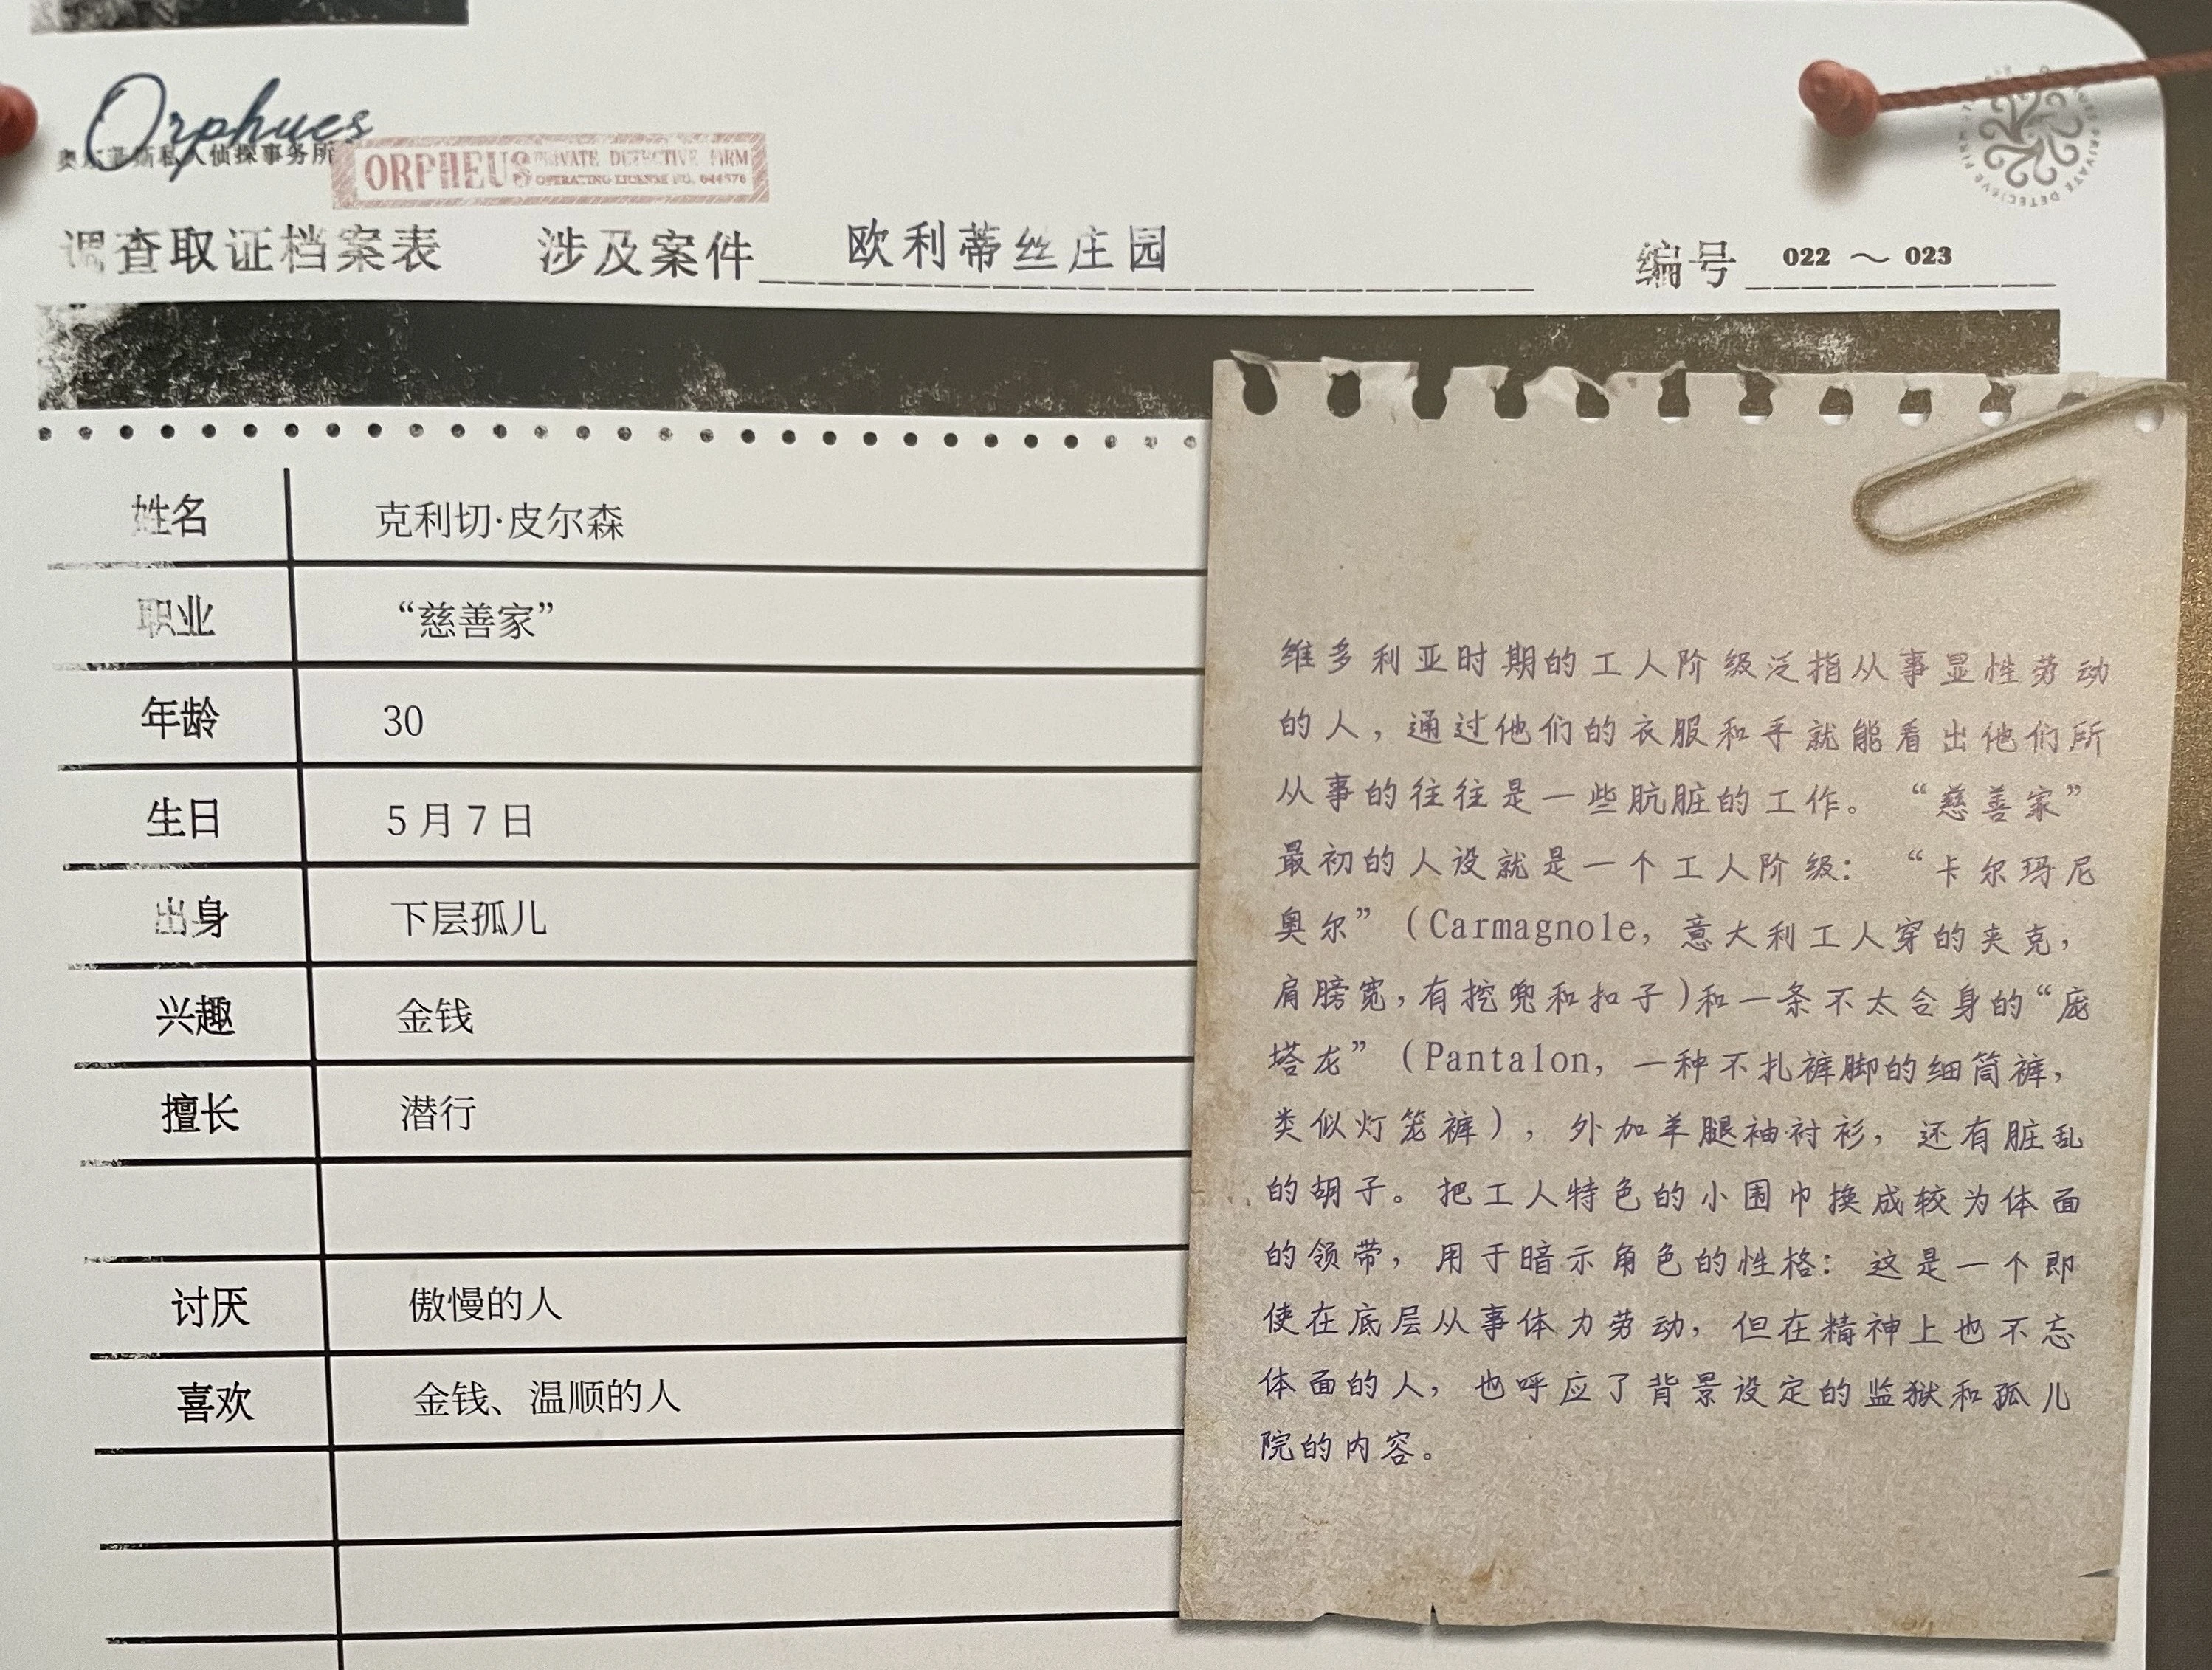 Orphues
奥尔菲斯私人侦探事务所
ORPHEUS PRIVATE DETECTIVE FIRM
OPERATING LICENSE NO.
调查取证档案表 涉及案件 欧利蒂丝庄园 编号 022 ~ 023
姓名 克利切·皮尔森
职业 “慈善家”
年龄 30
生日 5月7日
出身 下层孤儿
兴趣 金钱
擅长 潜行
讨厌 傲慢的人
喜欢 金钱、温顺的人
维多利亚时期的工人阶级泛指从事显性劳动
的人，通过他们的衣服和手就能看出他们所
从事的往往是一些肮脏的工作。“慈善家”
最初的人设就是一个工人阶级：“卡尔玛尼
奥尔”（Carmagnole，意大利工人穿的夹克，
肩膀宽，有挖兜和扣子）和一条不太合身的“庞
塔龙”（Pantalon，一种不扎裤脚的细筒裤，
类似灯笼裤），外加羊腿袖衬衫，还有脏乱
的胡子。把工人特色的小围巾换成较为体面
的领带，用于暗示角色的性格：这是一个即
使在底层从事体力劳动，但在精神上也不忘
体面的人，也呼应了背景设定的监狱和孤儿
院的内容。